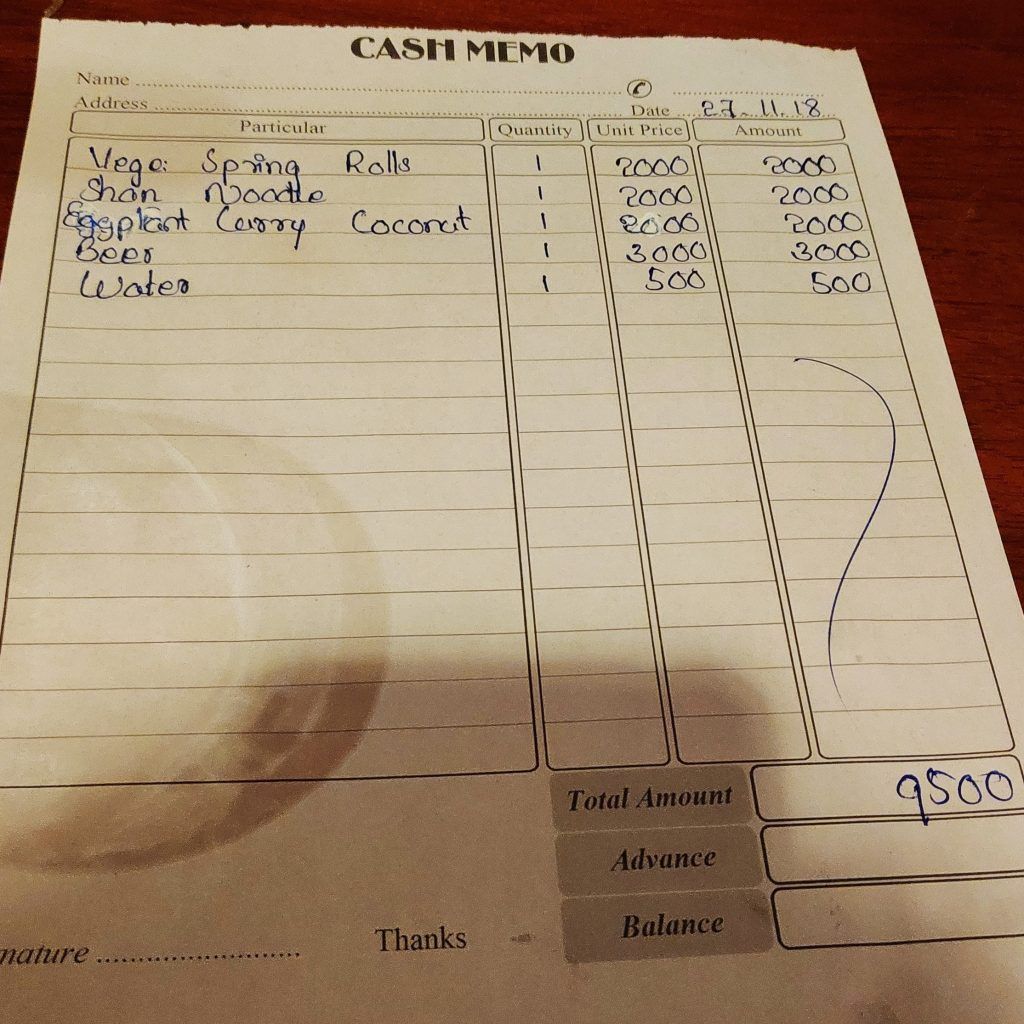 CASH MEMO
Name
Address Date 27.11.18
Particular Quantity Unit Price Amount
Vege: Spring Rolls 1 2000 2000
Shan Noodle 1 2000 2000
Eggplant Curry Coconut 1 2000 2000
Beer 1 3000 3000
Water 1 500 500
Total Amount 9500
Advance
Balance
nature Thanks